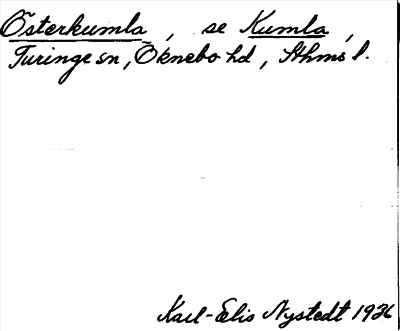 Österkumla, se Kumla,
Turinge sn, Öknebo hd, Sthms l.
Karl-Elis Nystedt 1936